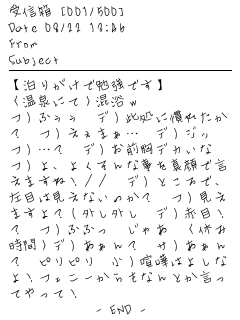 受信箱 [001/500]
Date 08/22 13:26
From
Subject
【泊りがけで勉強です】
(温泉にて)混浴w
フ)ふぅぅ デ)此処に慣れたか
? フ)ええまぁ… デ)ジッ
フ)…? デ)お前胸デカいな
フ)よ、よくそんな事を真顔で言
えますね!// デ)ところで、
左目は見えないのか? フ)見え
ますよ?(外し外し デ)赤目!
? フ)ふふっ じゃあ (休お
時間)デ)あぁん? サ)あぁん
? ピリピリ ふ)喧嘩はよしな
よ!フェニーからもなんとか言っ
てやって!
- END -